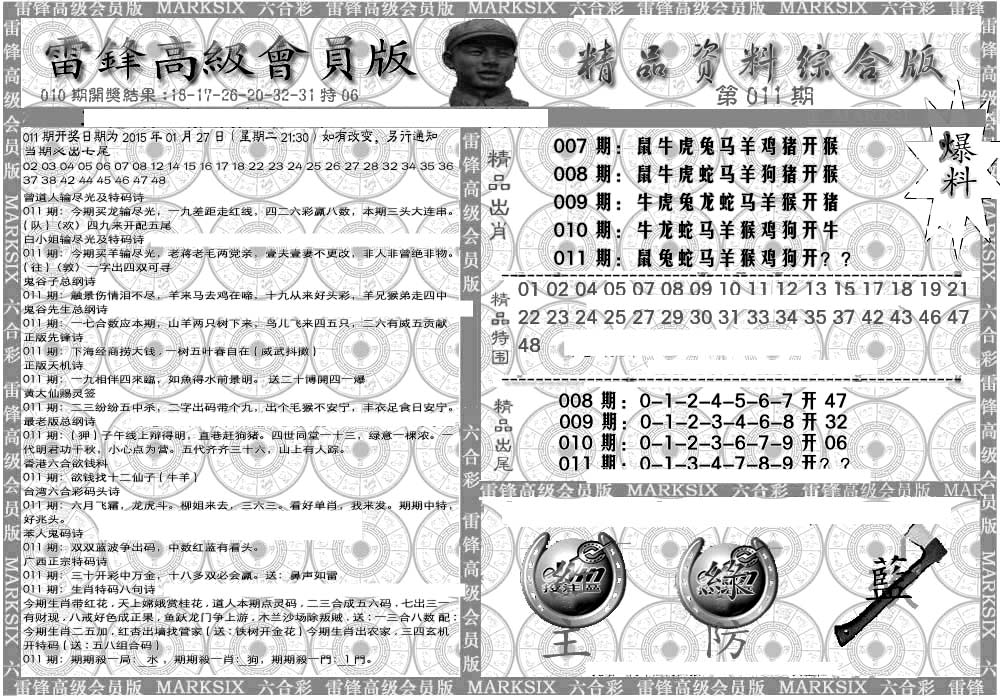 雷锋高级会员版 MARKSIX 六合彩 雷锋高级会员版 MARKSIX 六合彩 雷锋高级会员版 MARKSIX 六合彩 雷锋
雷鋒高級會員版
精品资料综合版
010期開獎結果:18-17-26-20-32-31特06
第011期
011期开奖日期为2015年01月27日(星期二21:30)如有改变，另行通知
当期必出七尾
02 03 04 05 06 07 08 12 14 15 16 17 18 22 23 24 25 26 27 28 32 34 35 36
37 38 42 44 45 46 47 48
曾道人输尽光及特码诗
011期：今期买龙输尽光，一九差距走红线，四二六彩赢八数，本期三头大连串。
(队)（欢）四九来开配五尾
白小姐输尽光及特码诗
011期：今期买羊输尽光，老蒋老毛两党亲，壹夫壹妻不更改，非人非曾绝非物。
(往)（敦）一字出四双可寻
鬼谷子总纲诗
011期：融景伤情泪不尽，羊来马去鸡在啼，十九从来好头彩，羊兄猴弟走四中
鬼谷先生总纲诗
011期：一七合数应本期，山羊两只树下来，鸟儿飞来四五只，二六有威五贡献
正版先锋诗
011期：下海经商捞大钱，一树五叶春自在(威武抖擞)
正版天机诗
011期：一九相伴四来臨，如魚得水前景明。送二十博開四一爆
黄大仙赐灵签
011期：二三纷纷五中杀，二字出码带个九，出个毛猴不安宁，丰衣足食日安宁。
最老版总纲诗
011期：(狎)子午线上辩得明，直巷赶狗猪。四世同堂一十三，绿意一棵浓。一
代明君功千秋，小心点为营。五代齐齐三十六，山上有人踪。
香港六合欲钱料
011期：欲钱找十二仙子(牛羊)
台湾六合彩码头诗
011期：六月飞霜，龙虎斗。柳姐来去，三六三。看好单肖，我来发。期期中特，
好兆头。
苯人鬼码诗
011期：双双蓝波争出码，中数红蓝有看头。
广西正宗特码诗
011期：三十开彩中万金，十八多双必会赢。送：鼻声如雷
011期：生肖特码八句诗
今期生肖带红花，天上嫦娥赏桂花，道人本期点灵码，二三合成五六码，七出三一
有财现，八戒好色成正果，鱼跃龙门争上游，木兰沙场除叛贼，送：一三合八数 配：
今期生肖二五加，红杏出墙找管家(送：铁树开金花)今期生肖出农家，三四玄机
开特码(送：五八组合码)
011期：期期殺一局：水，期期殺一肖：狗，期期殺一門：1門。
精品出肖
007 期：鼠牛虎兔马羊鸡猪开猴
008 期：鼠牛虎蛇马羊狗猪开猴
009 期：牛虎兔龙蛇马羊猴开猪
010 期：牛龙蛇马羊猴鸡狗开牛
011 期：鼠兔蛇马羊猴鸡狗开？？
爆料
精品特围
01 02 04 05 07 08 09 10 11 14 15 16 17 18 19 21
22 23 24 25 27 29 30 31 33 34 35 37 42 43 46 47
48
精品出尾
008 期：0-1-2-4-5-6-7 开 47
009 期：0-1-2-3-4-6-8 开 32
010 期：0-1-2-3-6-7-9 开 06
011 期：0-1-3-4-7-8-9 开？？
雷锋高级会员版 MARKSIX 六合彩 雷锋高级会员版 MAR
藍
王
防
雷锋高级会员版 MARKSIX 六合彩 雷锋高级会员版 MARKSIX 六合彩 雷锋高级会员版 MARKSIX 六合彩 雷锋